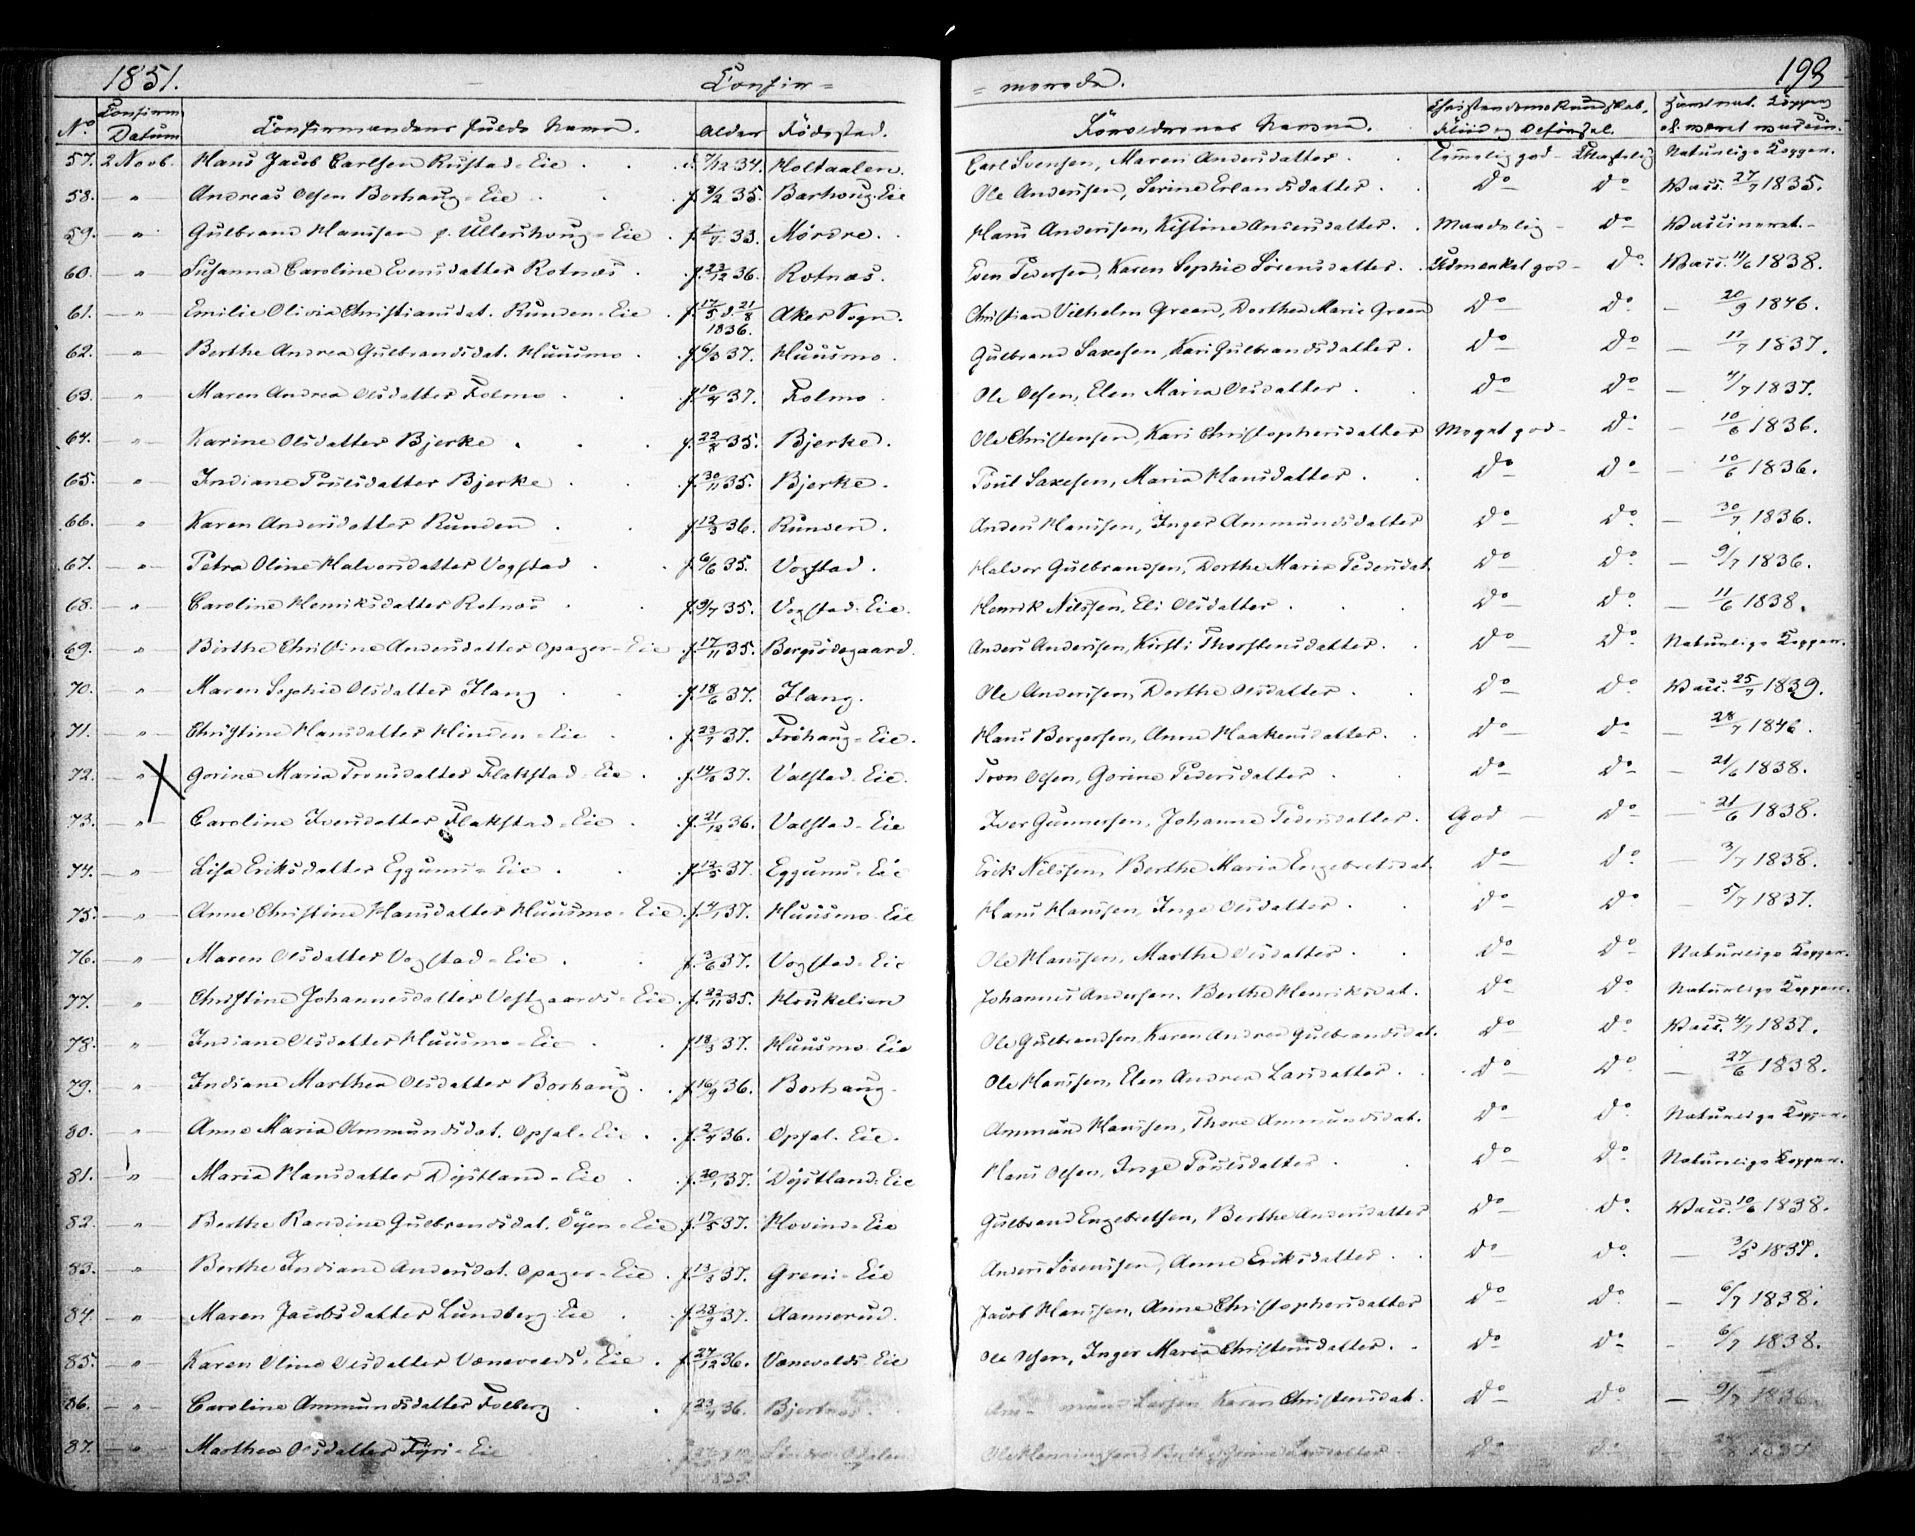 1851. Confir= =merede. 199
No Confirm. Datum Confirmandens fulde Navn. Alder Fødested. Forældrenes Navne. Christendoms Kundskab, Flid og Opførsel. Havt nat. Kopper el. været vaccin.
57. 2 Novb. Hans Jacob Carlsen Rustad-Eie d. 7/12 34. Holtaalen. Carl Svensen, Maren Andersdatter Temmelig god - Skikkelig Naturlige Kopper.
58. -"- Andreas Olsen Borhaug-Eie f. 3/2 35. Borhoug-Eie Ole Andersen, Serine Erlandsdatter Do Do Vacc. 27/7 1835.
59. -"- Gulbrand Hansen p. Ullershoug-Eie f. 33. Mørdre. Hans Andersen, Kistine Andersdatter Maadelig - Do Vaccineret.
60. -"- Susanna Caroline Evensdatter Rotnæs f. 23/12 36. Rotnæs. Even Pedersen, Karen Sophie Sørensdatter Udmærket god - Do Vacc. 11/6 1838.
61. -"- Emilie Olivia Christiansdat. Runden-Eie f. 17/5 d. 21/8 1836. Aker Sogn. Christian Vilhelm Green, Dorthea Marie Green Do Do - 20/9 1846.
62. -"- Berthe Andrea Gulbrandsdat. Huusmo f. 6/3 37. Huusmo. Gulbrand Saxesen, Kari Gulbrandsdatter Do Do - 11/7 1837.
63. -"- Maren Andrea Olsdatter Folmo f. 10/4 37. Folmo. Ole Olsen, Elen Maria Olsdatter Do Do - 4/7 1837.
64. -"- Karine Olsdatter Bjerke f. 22/ 35. Bjerke. Ole Christensen, Kari Christophersdatter Meget god - Do - 10/6 1836.
65. -"- Indiane Poulsdatter Bjerke f. 30/11 35. Bjerke. Poul Saxesen, Maria Hansdatter Do Do - 10/6 1836.
66. -"- Karen Andersdatter Runden f. 12/3 36. Runden. Anders Hansen, Inger Ammundsdatter Do Do - 30/7 1836.
67. -"- Petra Oline Halvorsdatter Vogstad f. 6/6 35. Vogstad. Halvor Gulbrandsen, Dorthe Maria Pedersdat. Do Do - 9/7 1836.
68. -"- Caroline Henriksdatter Rotnæs f. 9/7 35. Vogstad-Eie. Henrik Nilssen, Eli Olsdatter Do Do - 11/6 1838.
69. -"- Birthe Christine Andersdatter Opager-Eie f. 17/11 35. Bergsødegaard. Anders Andersen, Kirsti Thorstensdatter Do Do Naturlige Kopper.
70. -"- Maren Sophie Olsdatter Ilang f. 18/6 37. Ilang. Ole Andersen, Dorthe Olsdatter Do Do Vacc. 25/7 1839.
71. -"- Christine Hansdatter Hinden-Eie f. 23/7 37. Frøhaug-Eie. Hans Bergersen, Anne Haakensdatter Do Do - 28/7 1846.
72. -"- Gorine Maria Tronsdatter Flakstad-Eie f. 14/3 37. Valstad-Eie. Tron Olsen, Gorine Pedersdatter Do Do - 21/6 1838.
73. -"- Caroline Iversdatter Flakstad-Eie f. 21/12 36. Valstad-Eie Iver Gunnersen, Johanne Pedersdatter God - Do - 21/6 1838.
74. -"- Lisa Eriksdatter Eggums-Eie f. 12/5 37. Eggums-Eie Erik Nilssen, Berthe Maria Engebretsdat. Do Do 3/7 1838.
75. -"- Anne Christine Hansdatter Huusmo-Eie f. 4/1 37. Huusmo-Eie Hans Hansen, Inge Olsdatter Do Do - 5/7 1837.
76. -"- Maren Olsdatter Vogstad-Eie f. 3/6 37. Vogstad-Eie Ole Hansen, Marthe Olsdatter Do Do Naturlige Kopper.
77. " Christine Johannesdatter Vestgaards-Eie f. 22/11 35. Houkelien Johannes Andersen, Berthe Henriksdat. Do Do Naturlige Kopper.
78. " Indiane Olsdatter Huusmo-Eie f. 18/3 37. Huusmo-Eie Ole Gulbrandsen, Karen Andrea Gulbrandsdat. Do Do Vacc. 4/7 1837.
79. " Indiane Marthea Olsdatter Borhaug f. 16/9 36. Borhaug Ole Hansen, Elen Andrea Larsdatter Do Do - 27/6 1838.
80. " Anne Maria Ammundsdat. Opsal-Eie f. 2/4 36. Opsal-Eie. Ammund Hansen, Thore Ammundsdat. Do Do Naturlige Kopper.
81. -"- Maria Hansdatter Døstland-Eie f. 20/ 37. Døstland-Eie Hans Olsen, Inge Poulsdatter Do Do Naturlige Kopper.
82. -"- Berthe Randine Gulbrandsdat. Öyen-Eie f. 17/5 37. Hovind-Eie Gulbrand Engebretsen, Berthe Andersdatter Do Do Vacc. 10/6 1838.
83. -"- Berthe Indiane Andersdat. Opager-Eie f. 13/3 37. Greni-Eie Anders Sørensen, Anne Eriksdatter Do Do - 3/5 1837.
84. -"- Maren Jacobsdatter Lundberg-Eie f. 28/ 37. Aannerud. Jacob Hansen, Anne Christophersdatter Do Do - 6/7 1838.
85. -"- Karen Oline Olsdatter Vænevolds-Eie f. 27/12 36. Vænevolds-Eie Ole Olsen, Inger Maria Christensdatter Do Do - 6/7 1838.
86. -"- Caroline Ammundsdatter Folberg f. 23/ 36. Bjertnes. Am- mund Larsen Karen Christensdat. Do Do - 9/7 1836
87. -"- Marthea Olsdatter Fyri-Eie Søndre Odalen Ole Henningsen, Larsdatter Do Do